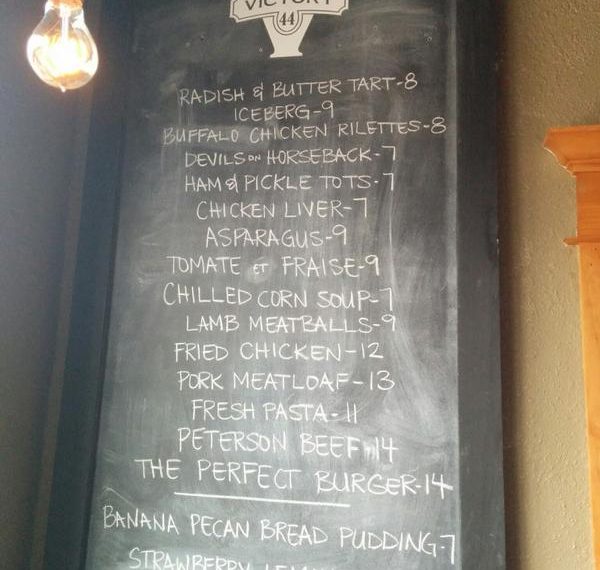 VICTORY
44
RADISH & BUTTER TART-8
ICEBERG-9
BUFFALO CHICKEN RILETTES-8
DEVILS ON HORSEBACK-7
HAM & PICKLE TOTS-7
CHICKEN LIVER-7
ASPARAGUS-9
TOMATE ET FRAISE-9
CHILLED CORN SOUP-7
LAMB MEATBALLS-9
FRIED CHICKEN-12
PORK MEATLOAF-13
FRESH PASTA-11
PETERSON BEEF-14
THE PERFECT BURGER-14
BANANA PECAN BREAD PUDDING-7
STRAWBERRY